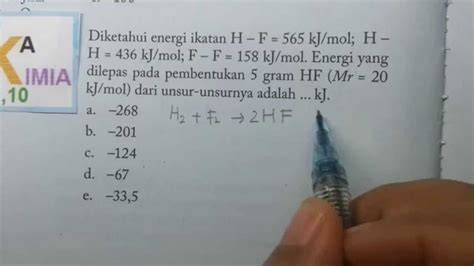 A
IMIA
,10
Diketahui energi ikatan H – F = 565 kJ/mol; H –
H = 436 kJ/mol; F – F = 158 kJ/mol. Energi yang
dilepas pada pembentukan 5 gram HF (Mr = 20
kJ/mol) dari unsur-unsurnya adalah ... kJ.
a. –268
H₂ + F₂ → 2HF
b. –201
c. –124
d. –67
e. –33,5